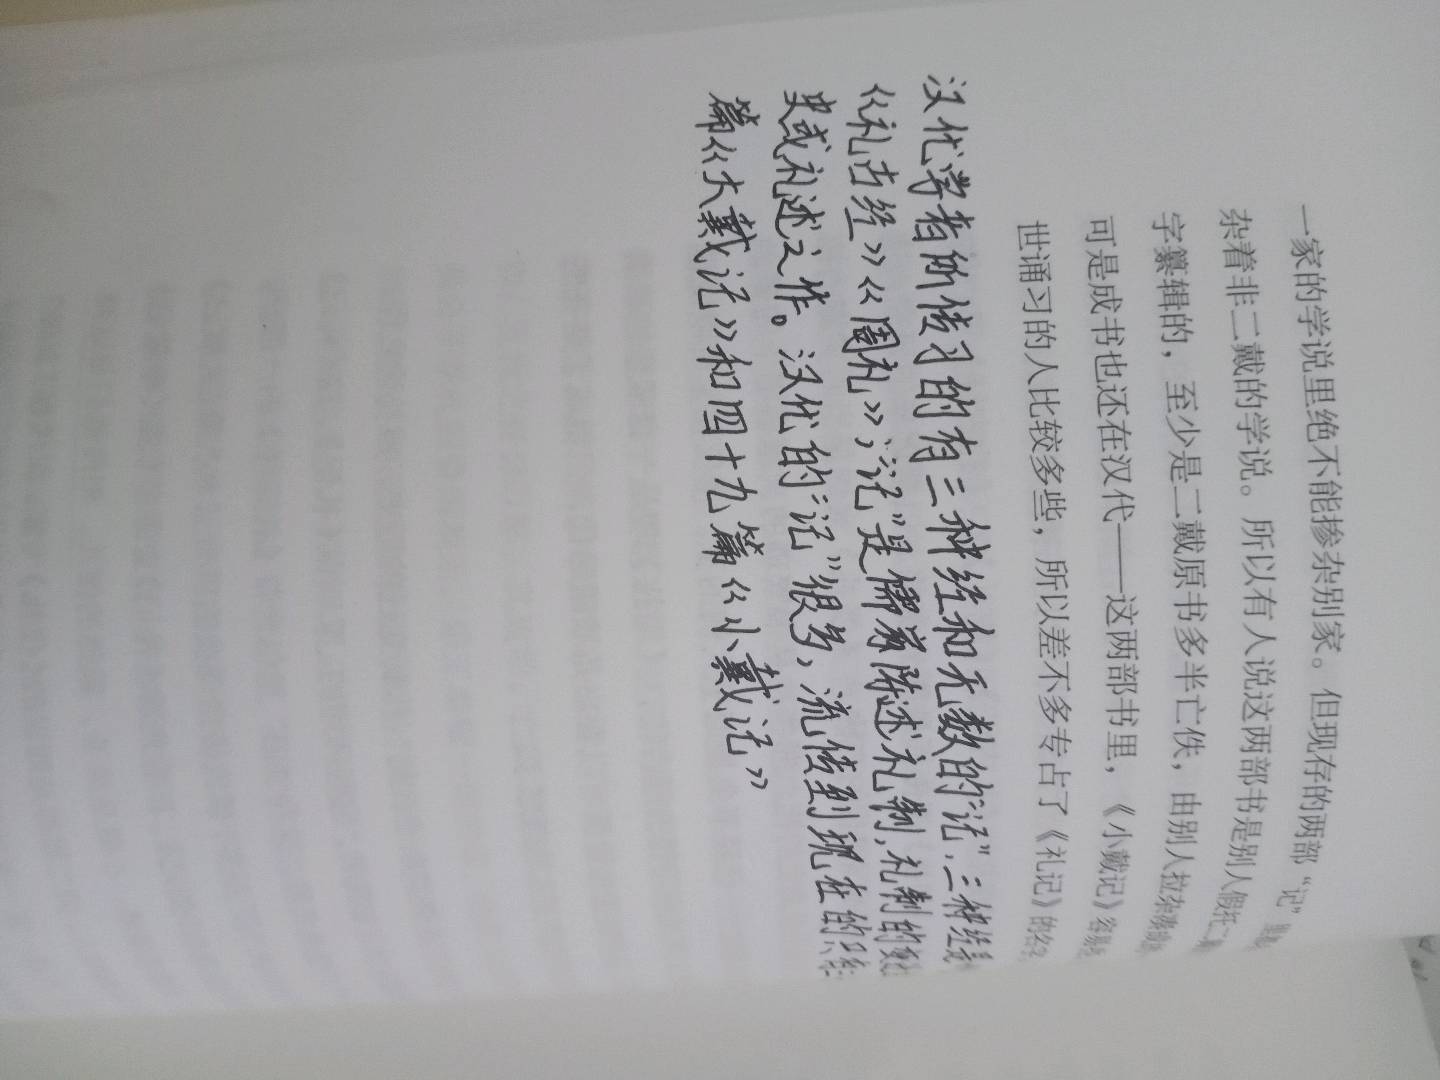 一家的学说里绝不能掺杂别家。但现存的两部“记”里
杂着非二戴的学说。所以有人说这两部书是别人假托二
字纂辑的，至少是二戴原书多半亡佚，由别人拉杂凑
可是成书也还在汉代——这两部书里，《小戴记》容易
世诵习的人比较多些，所以差不多专占了《礼记》的名
汉代学者所传习的有三种经和无数的“记”，三种经是
《礼古经》《周礼》；“记”是儒家陈述礼制，礼制的变
史或礼述之作。汉代的“记”很多，流传到现在的只
篇《大戴记》和四十九篇《小戴记》